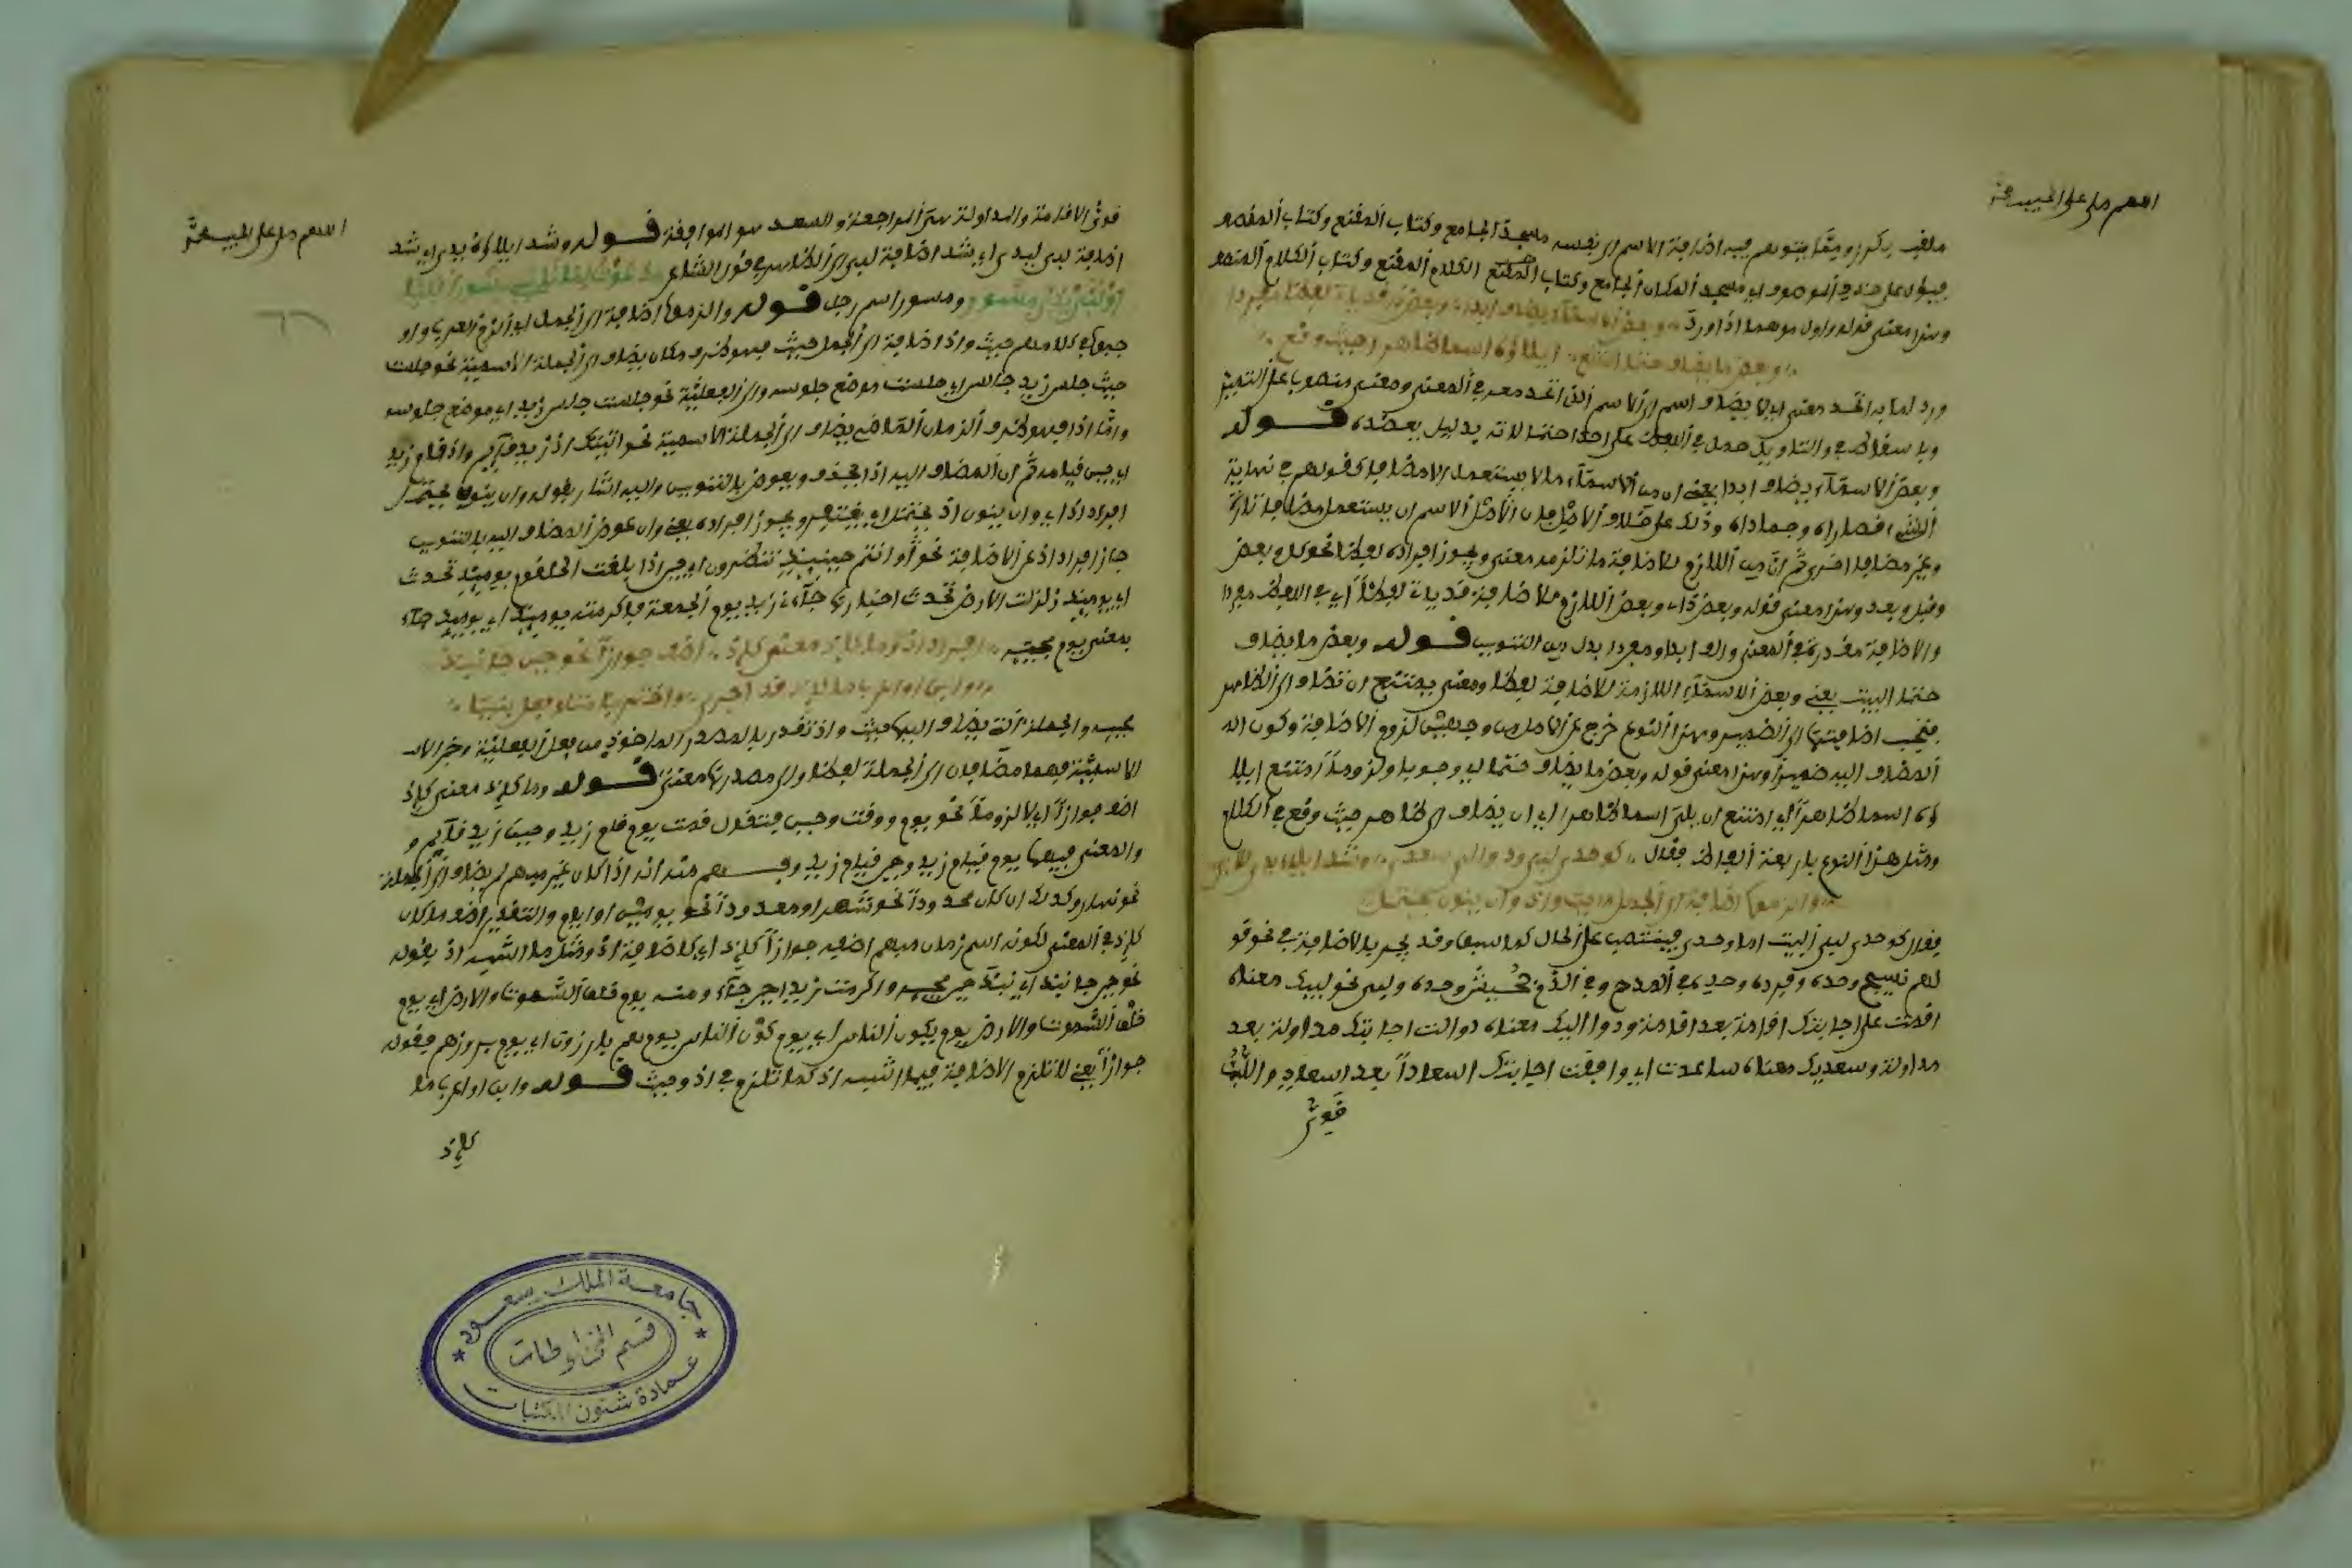 اللهم صل على الحبيب محمد
ملغب بكرز ومما يتوهم فيه اضافة الاسم الى نفسه مسجد الجامع وكتاب المقنع وكتاب المفصل
فيؤول على حذف الموصوف اي مسجد المكان الجامع وكتاب الكلام المقنع وكتاب الكلام المفصل
وهذا معنى قوله واول موهما اذا ورد وبعض الاسماء يضاف ابدا وبعض ذا قد يات لفظا مفردا
وبعض ما يضاف حتما امتنع ايلاؤه اسما ظاهرا حيث وقع
ورد لما به اتحد معنى اي لا يضاف اسم الى الاسم الذي اتحد معه في المعنى ومعنى منصوب على التمييز
قوله
وبعض الاسماء يضاف ابدا يعني ان من الاسماء ما لا يستعمل الا مضافا كقولهم في نهاية
الشيء قصاراه وحماداه وذلك على خلاف الاصل فان الاصل الاسم ان يستعمل مضافا تارة
وغير مضاف اخرى ثم ان من اللازم للاضافة ما تلزمه معنى ويجوز افراده لفظا نحو كل وبعض
وقبل وبعد وهذا معنى قوله وبعض ذا اي وبعض اللازم للاضافة قد يات لفظا اي في اللفظ مفردا
والاضافة مقدرة في المعنى والف ابدا ومفردا بدل من التنوين قوله وبعض ما يضاف
حتما البيت يعني وبعض الاسماء اللازمة للاضافة لفظا ومعنى يمتنع ان تضاف الى الظاهر
فتجب اضافتها الى الضمير وهذا النوع خرج عن الاصل من وجهين لزوم الاضافة وكون
المضاف اليه ضميرا وهذا معنى قوله وبعض ما يضاف حتما اي وجوبا ولزوما امتنع ايلا
ؤه اسما ظاهرا اي امتنع ان يلى اسما ظاهرا اي ان يضاف الى ظاهر حيث وقع في الكلام
ومثل هذا النوع باربعة الفاظ فقال كوحد لبي ودوالي سعدي وشذ ايلاء يدي للبي
والزموا اضافة الى الجمل حيث واذ وان ينون يحتمل
فقال كوحدي لبي البيت اما وحدي فينتصب على الحال كما سبق وقد يجر بالاضافة في نحو قو
لهم نسيج وحده وقريع وحده في المدح وفي الذم جحيش وحده ولبي نحو لبيك معناه
اقمت على اجابتك اقامة بعد اقامة ودواليك معناه دوالت اجابتك مداولة بعد
مداولة وسعديك معناه ساعدت اي وافقت اجابتك اسعادا بعد اسعاد
اللهم صل على الحبيب محمد
الاقامة والمداولة المراجعة والسعد هو الموافقة قوله وشذ ايلاؤه يدي اي شذ
اضافة لبي ليدي اي شذ اضافة لبي الى الظاهر في قول الشاعر دعوت لما نابني مسورا فلبا
فلبي يدي مسور ومسور اسم رجل قوله والزموا اضافة الى الجمل اي الزم العرب او
جبوا في كلامهم حيث واذ اضافة الى الجمل حيث فهو ظرف مكان يضاف الى الجملة الاسمية نحو جلست
حيث جلس زيد جالس اي جلست موضع جلوسه والى الفعلية نحو جلست جلس زيد اي موضع جلوسه
واما اذ فهو ظرف الزمان الماضي يضاف الى الجملة الاسمية نحو اتيتك اذ زيد قائم واذ قام زيد
اي حين قيامه ثم ان المضاف اليه اذ يحذف ويعوض بالتنوين واليه اشار بقوله وان ينون يحتمل
افراد اذ اي وان ينون اذ يحتمل اي يغتفر ويجوز افراده يعني وان عوض المضاف اليه بالتنوين
جاز افراد اذ عن الاضافة نحو وانتم حينئذ تنظرون اي حين اذ بلغت الحلقوم يومئذ تحدث
اي يوم اذ زلزلت الارض تحدث اخبارها جاء زيد يوم الجمعة فاكرمته يومئذ اي يوم اذ جاء
بمعنى يوم مجيئه افراد اذ وما كاذ معنى كاذ اضف جوازا نحو حين جا نبذ
وابن او اعرب ما كاذ قد اجري واختر بنا متلو فعل بنيا
الاسمية فهما مضافان الى الجملة لفظا والى مصدرها معنى قوله وما كاذ معنى كاذ
اضف جوازا اي لا لزوما نحو يوم ووقت وحين فتقول قمت يوم قام زيد وحين زيد قائم و
والمعنى فيهما يوم قيام زيد وحين قيام زيد وفهم منه انه اذا كان غير مبهم لم يضف الى الجملة
نحو نهار وكذلك ان كان محدودا نحو شهر او معدودا نحو يومين او ايام والتقدير اضف ما كان
كاذ في المعنى لكونه اسم زمان مبهم اضفه جوازا كاذ اي كاضافة اذ ومثل ما اشبه اذ بقوله
نحو حين جا نبذ اي نبذ حين مجيئه واكرمت زيدا حين جاء ومنه يوم خلق السموات والارض اي يوم
خلق السموات والارض يوم يكون الناس اي يوم كون الناس يوم هم بارزون اي يوم بروزهم فقوله
جوازا يعني لا تلزم الاضافة فيما اشبه اذ كما تلزم في اذ وحيث قوله وابن او اعرب ما
كاذ
جامعة الملك سعود
قسم المخطوطات
عمادة شئون المكتبات